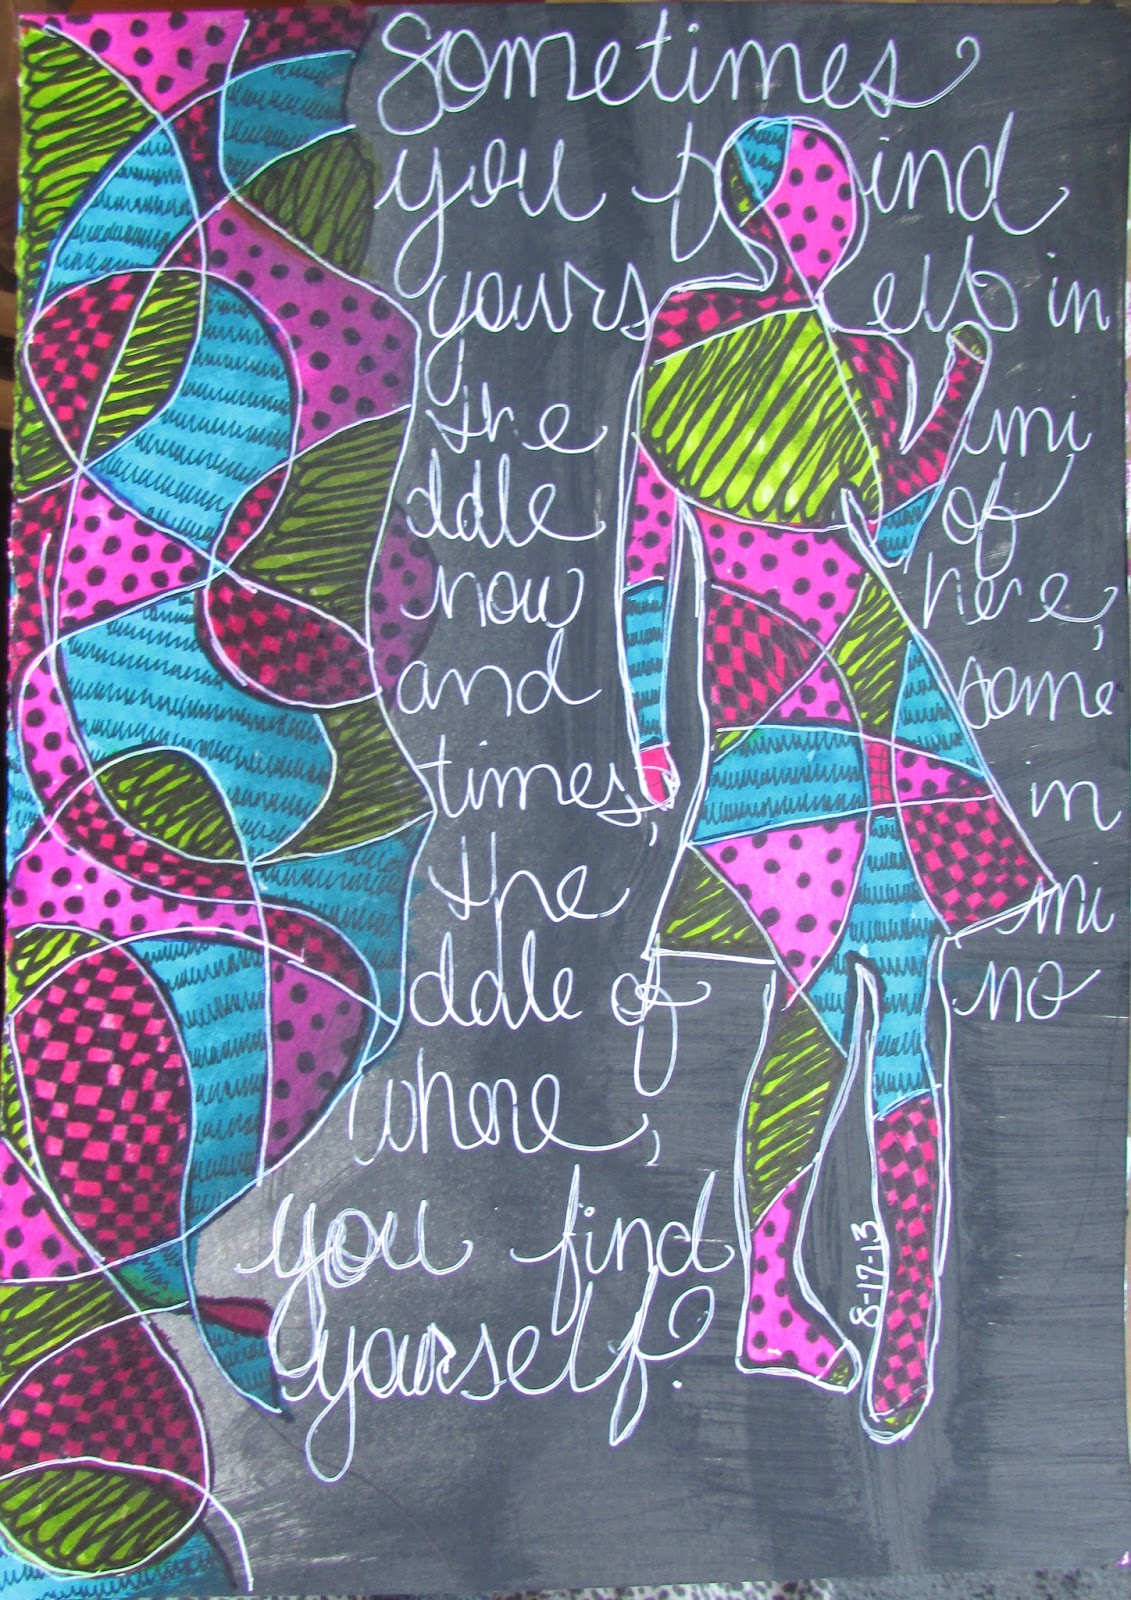 Sometimes
you find
yourself in
the mi
ddle of
now here,
and some
times, in
the mi
ddle of no
where,
you find
yourself.
8-17-13